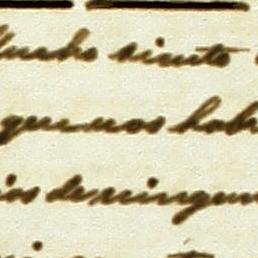 Mucho siento
que nos hab
ios de ningun